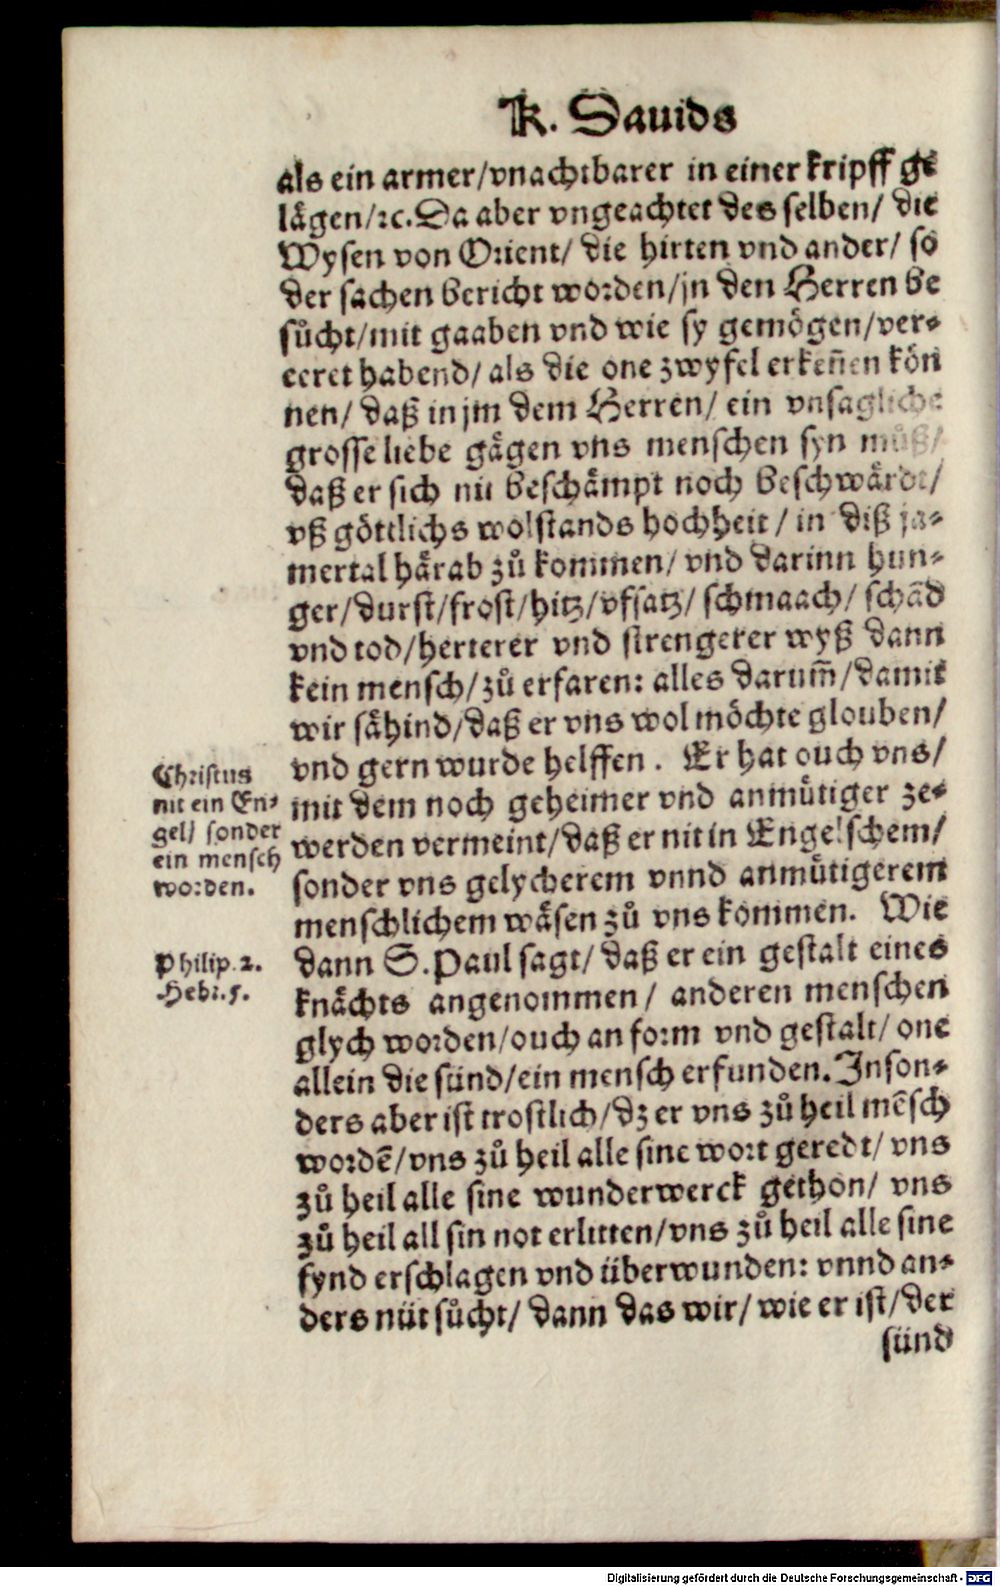 K. Dauids
als ein armer/vnachtbarer in einer kripff ge
lägen/ꝛc. Da aber vngeachtet des selben/ die
Wysen von Orient/ die hirten vnd ander/ so
der sachen bericht worden/jn den Herren be
sůcht/mit gaaben vnd wie sy gemögen/ver⸗
eeret habend/ als die one zwyfel erkeñen kön
nen/ daß in jm dem Herren/ ein vnsagliche
grosse liebe gägen vns menschen syn můß/
daß er sich nit beschämpt noch beschwärdt/
vß göttlichs wolstands hochheit/ in diß ja⸗
mertal härab zů kommen/ vnd darinn hun⸗
ger/durst/frost/hitz/vfsatz/ schmaach/ schãd
vnd tod/herterer vnd strengerer wyß dann
kein mensch/zů erfaren: alles darum̃/damit
wir sähind/daß er vns wol möchte glouben/
vnd gern wurde helffen. Er hat ouch vns/
mit dem noch geheimer vnd anmůtiger ze⸗
werden vermeint/daß er nit in Engelschem/
sonder vns gelycherem vnnd anmůtigerem
menschlichem wäsen zů vns kommen. Wie
dann S. Paul sagt/ daß er ein gestalt eines
knächts angenommen/ anderen menschen
glych worden/ouch an form vnd gestalt/ one
allein die sünd/ein mensch erfunden. Inson⸗
ders aber ist trostlich/dz er vns zů heil mẽsch
wordẽ/vns zů heil alle sine wort geredt/ vns
zů heil alle sine wunderwerck gethon/ vns
zů heil all sin not erlitten/vns zů heil alle sine
fynd erschlagen vnd überwunden: vnnd an⸗
ders nüt sůcht/ dann das wir/ wie er ist/der
sünd
Christus
nit ein En⸗
gel/ sonder
ein mensch
worden.
Philip. 2.
Hebr. 5.
Digitalisierung gefördert durch die Deutsche Forschungsgemeinschaft - DFG